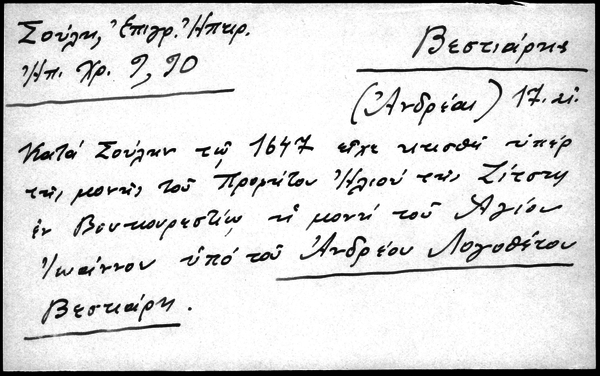 Σούλη, Ἐπιγρ. Ἠπειρ.
Ἠπ. Χρ. 9, 90
Βεστιάρης
(Ἀνδρέας) 17. αἰ.
Κατά Σούλην τῷ 1647 εἶχε κτισθῆ ὑπέρ
τῆς μονῆς τοῦ Προφήτου Ἠλιού τῆς Ζίτσης
ἐν Βουκουρεστίῳ ἡ μονή τοῦ Ἁγίου
Ἰωάννου ὑπό τοῦ Ἀνδρέου Λογοθέτου
Βεστιάρη.